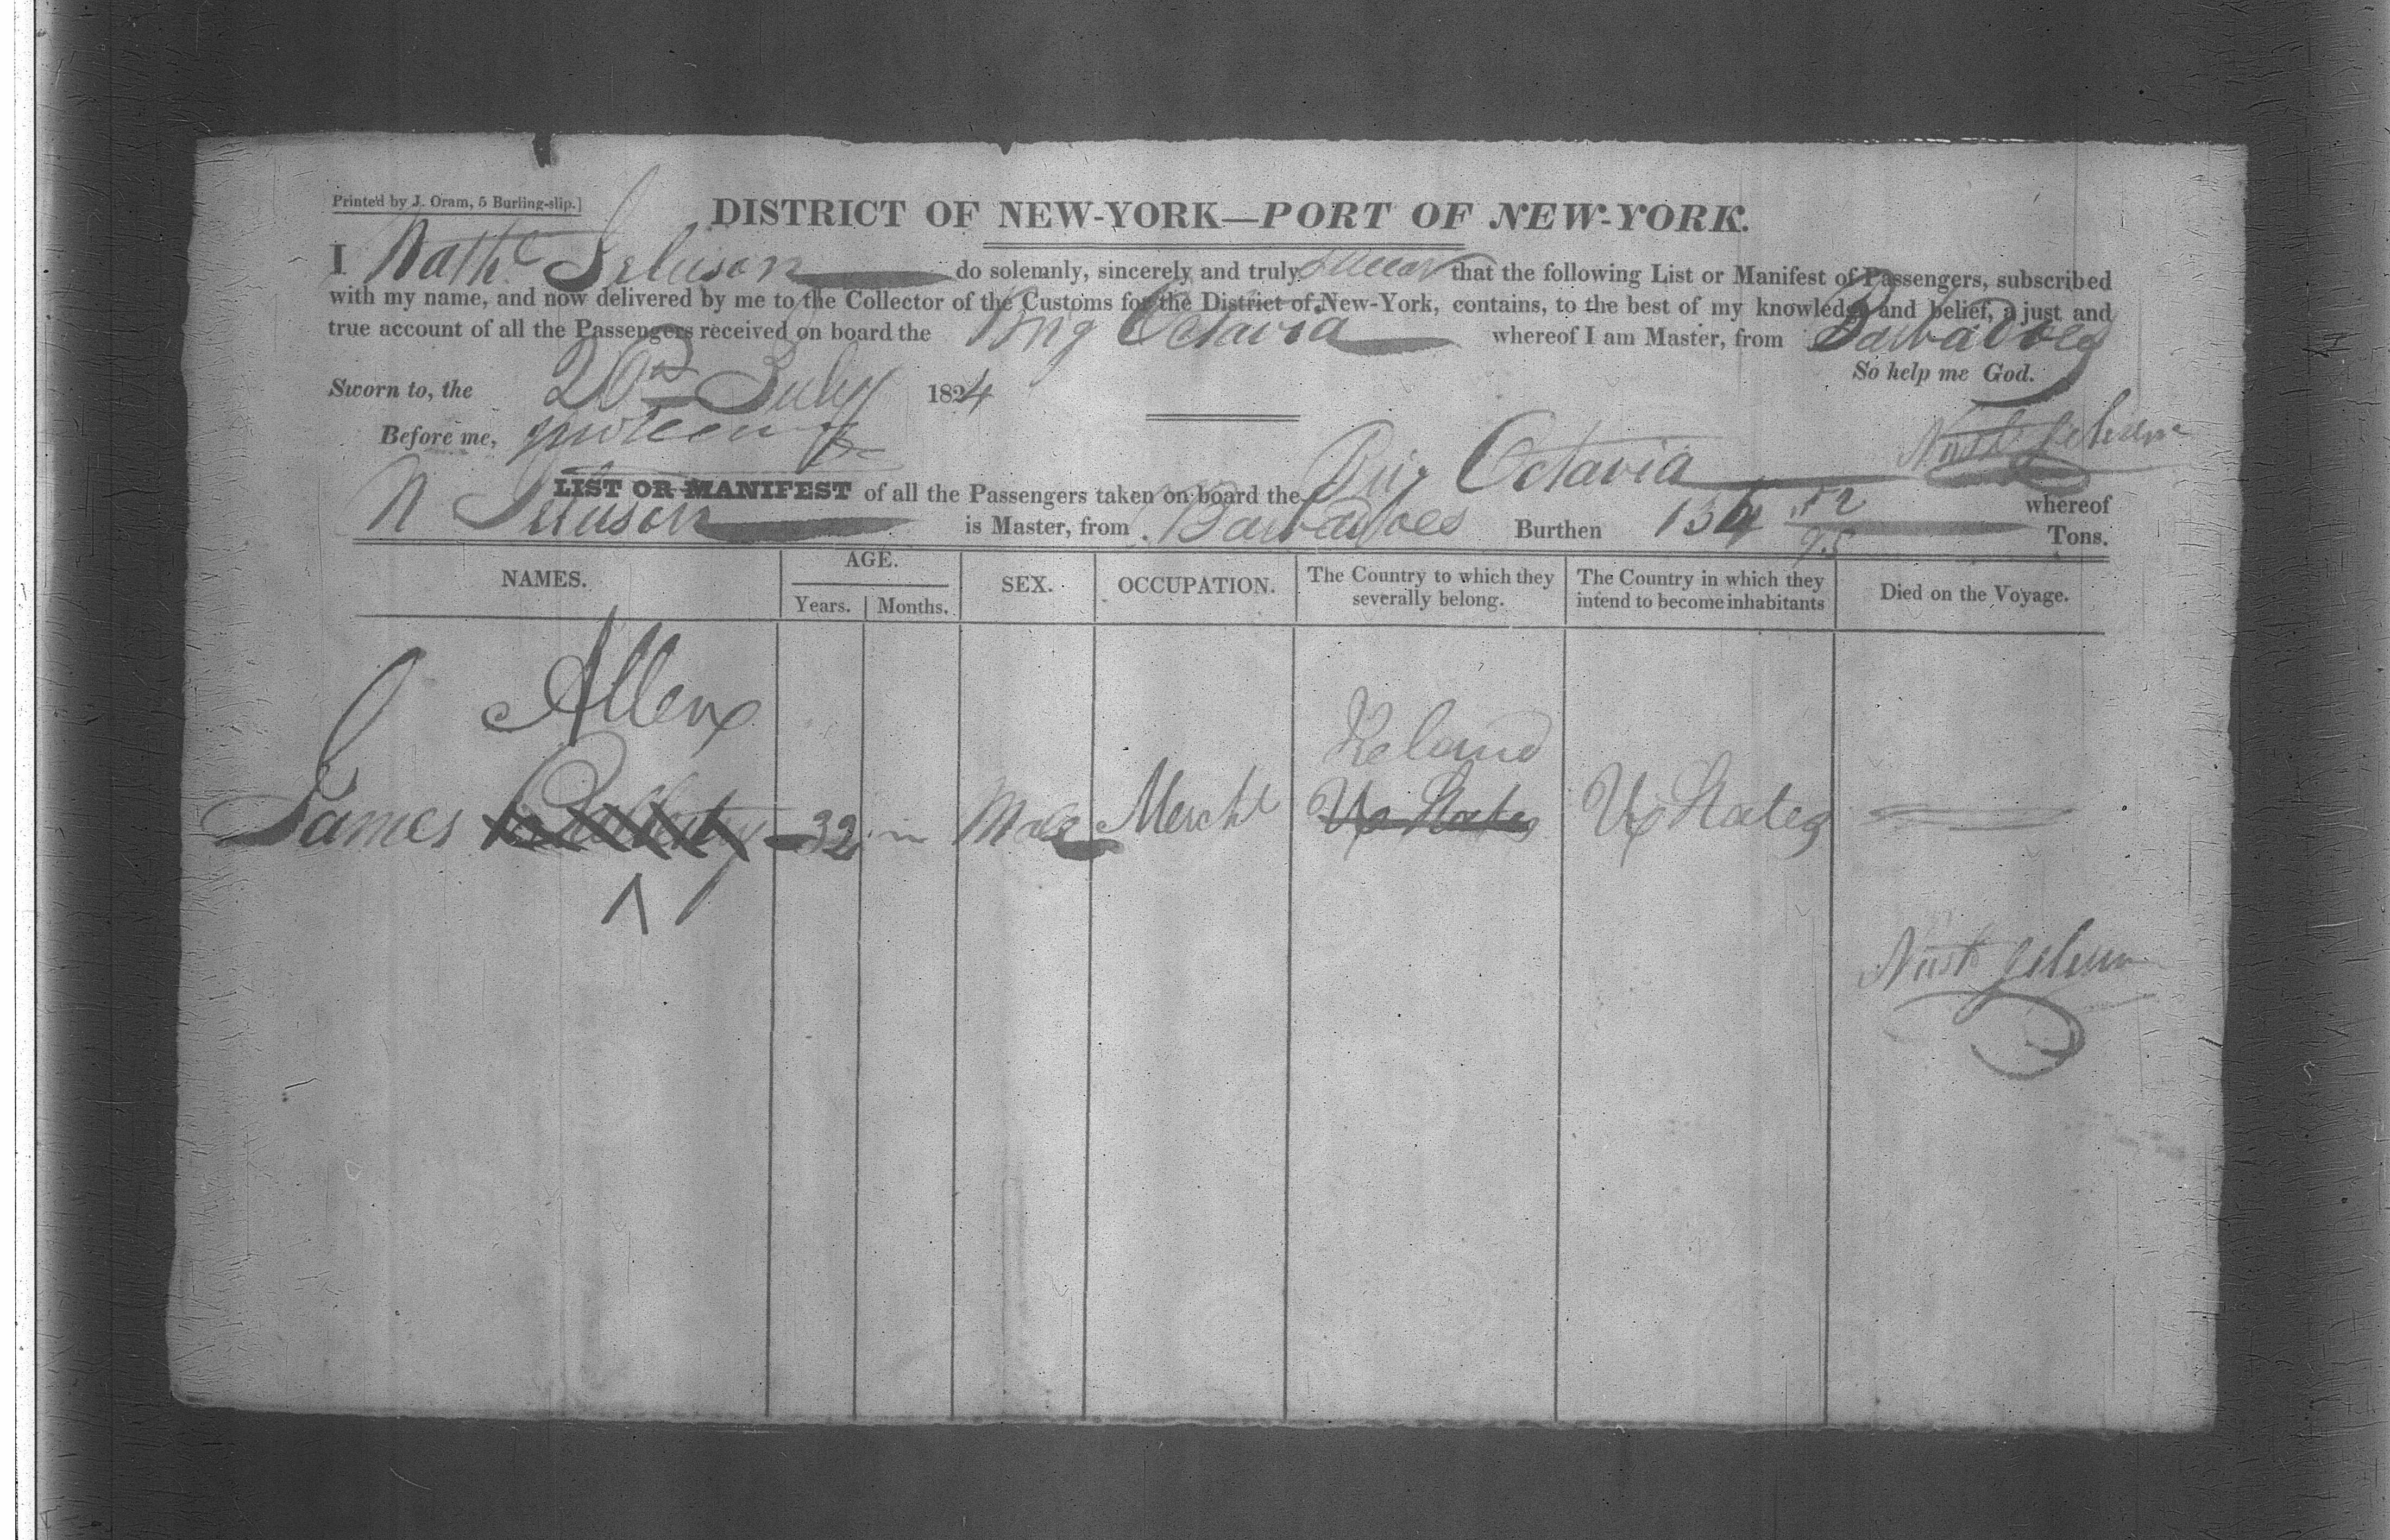 Printed by J. Oram, 5 Burling-slip.]
DISTRICT OF NEW-YORK—PORT OF NEW-YORK.
I Nathl do solemnly, sincerely and truly swear that the following List or Manifest of Passengers, subscribed
with my name, and now delivered by me to the Collector of the Customs for the District of New-York, contains, to the best of my knowledge and belief, a just and
true account of all the Passengers received on board the Brig Octavia whereof I am Master, from Barbadoes
So help me God.
Sworn to, the 20th July 1824
Before me,
LIST OR MANIFEST of all the Passengers taken on board the Brig Octavia whereof
N is Master, from Barbadoes Burthen 134 52/95 Tons.
NAMES. AGE. Years. Months. SEX. OCCUPATION. The Country to which they severally belong. The Country in which they intend to become inhabitants Died on the Voyage.
Allen Ireland
James 32 Male Mercht U States U States